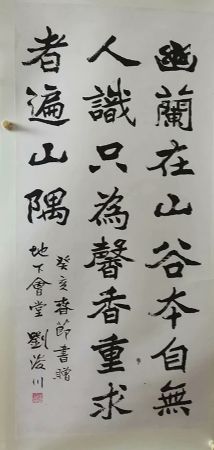 幽蘭在山谷本自無
人識只為馨香重求
者遍山隅
癸亥春節書贈
地下會堂 劉浚川